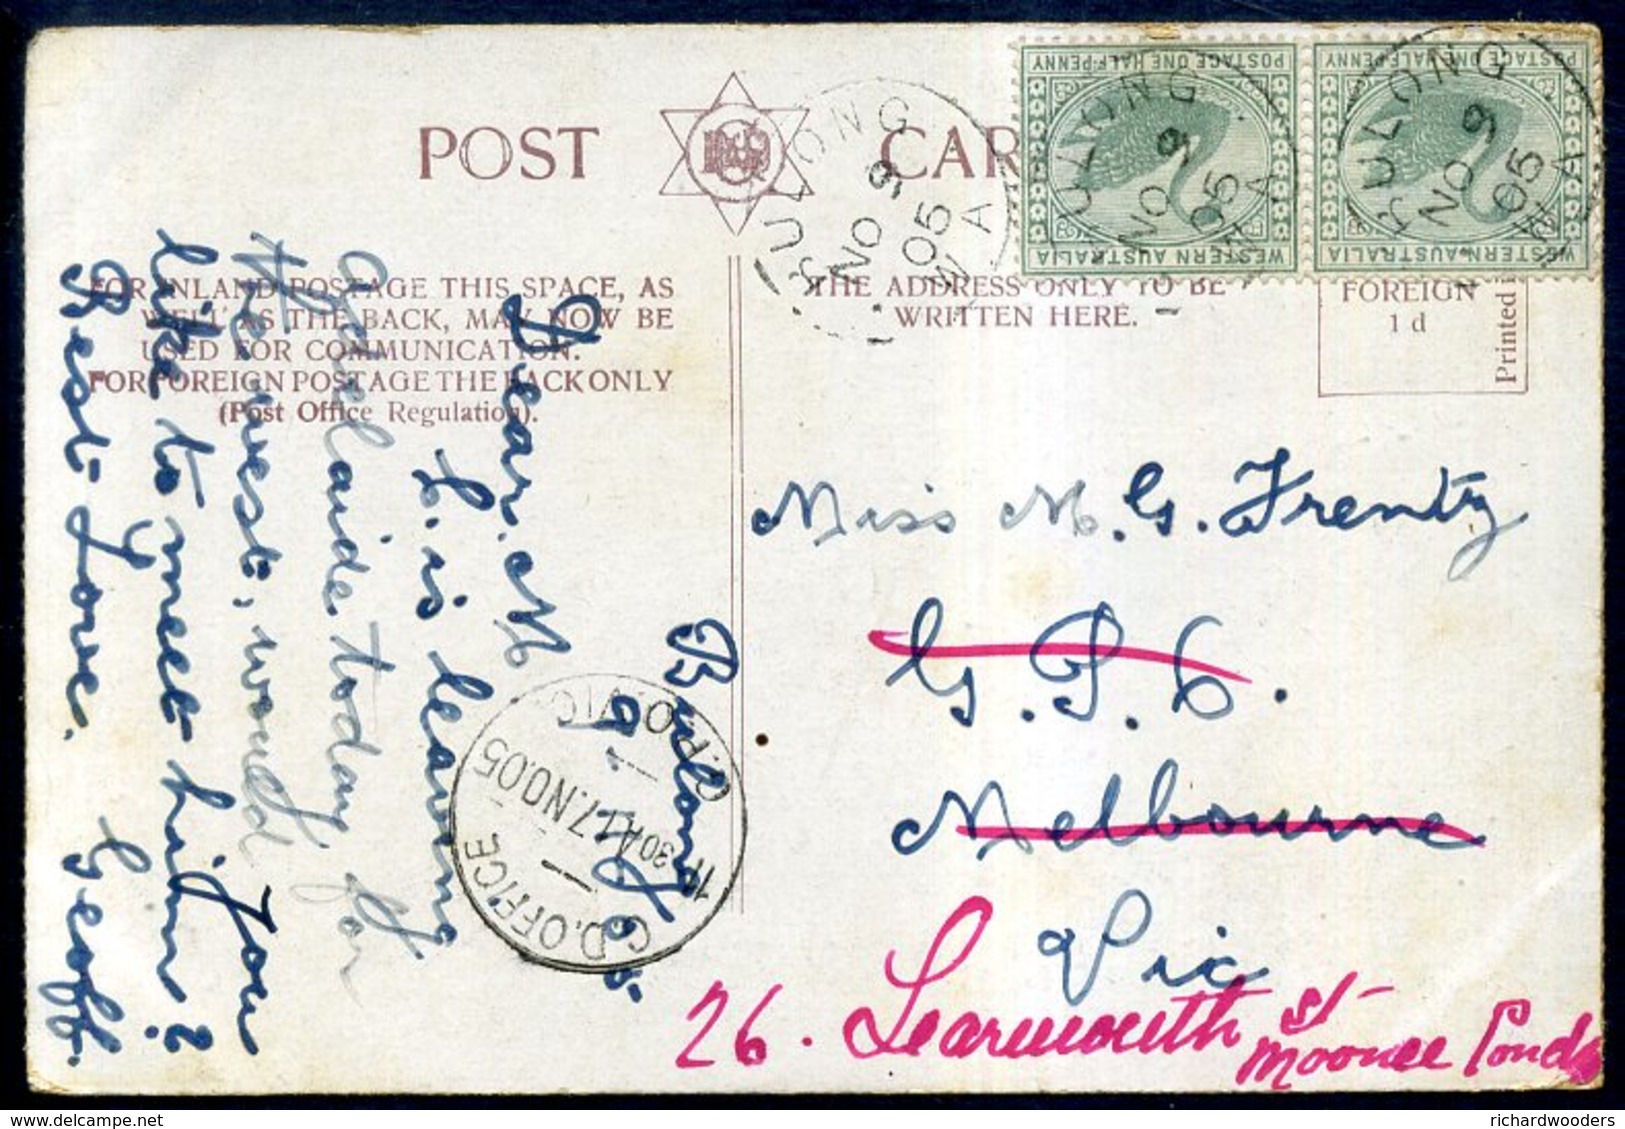 POST CARD
FOR INLAND POSTAGE THIS SPACE, AS
WELL AS THE BACK, MAY NOW BE
USED FOR COMMUNICATION.
FOR FOREIGN POSTAGE THE BACK ONLY
(Post Office Regulation).
THE ADDRESS ONLY TO BE
WRITTEN HERE.
FOREIGN
1 d
Printed i
POSTAGE ONE HALF-PENNY
WESTERN AUSTRALIA
POSTAGE ONE HALF-PENNY
WESTERN AUSTRALIA
BULONG
NO 9
05
W A
BULONG
NO 9
05
W A
BULONG
NO 9
05
W A
Bulong
9.
05.
Dear M
L. is leaving
Adelaide today for
the west, would you
like to meet him?
Best Love. Geoff.
D. OFFICE
7.NO.05
G.P.O. VIC
Miss M. G. Frentz
G. P. O.
Melbourne
Vic
26. Learmouth St
Moonee Ponds
richardwooders